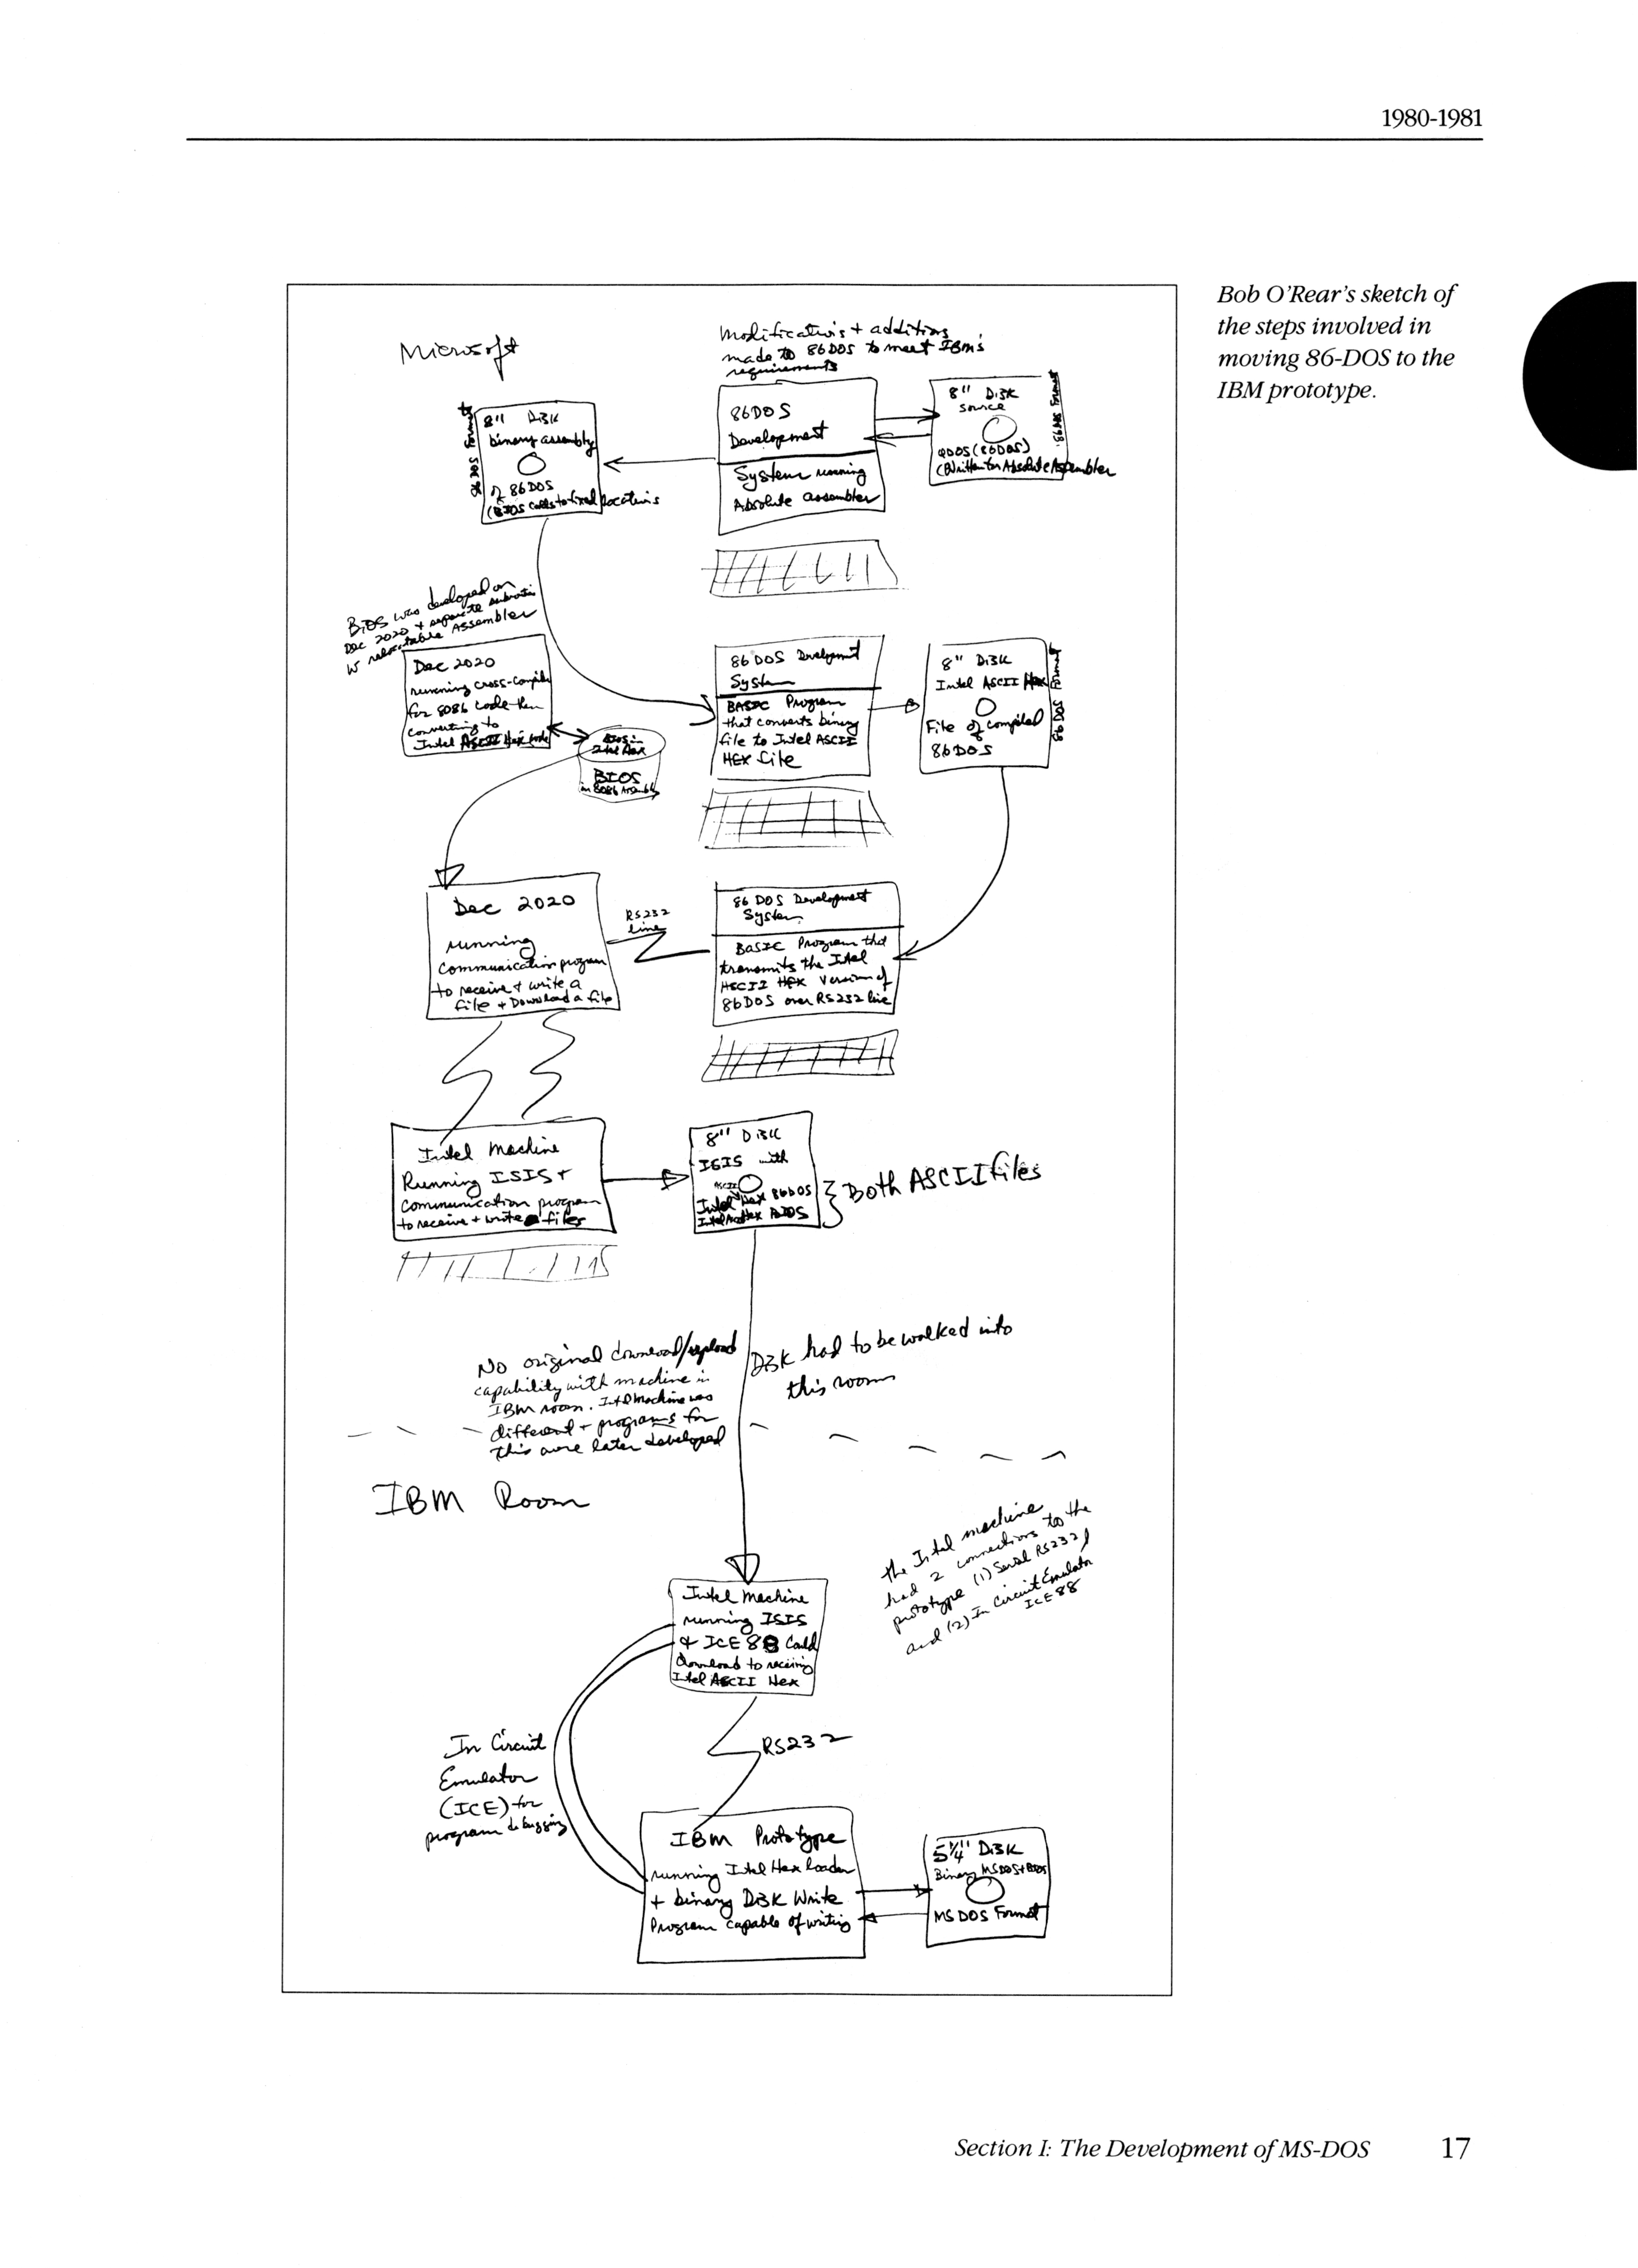 1980-1981
Bob O'Rear's sketch of
the steps involved in
moving 86-DOS to the
IBM prototype.
Microsoft
Modifications + additions
made to 86DOS to meet IBM's
requirements
8" Disk
binary assembly
of 86DOS
(BIOS calls to fixed locations
86DOS
Development
System running
Absolute assembler
8" Disk
source
QDOS (86DOS)
(Written for Absolute Assembler
86DOS format
BIOS was developed on
Dec 2020 + separate
w relocatable Assembler
Dec 2020
running cross-compile
for 8086 code then
converting to
Intel ASCII Hex code
BIOS in
Intel Hex
BIOS
in 8086 Assembly
86 DOS Development
System
BASIC Program
that converts binary
file to Intel ASCII
HEX file
8" Disk
Intel ASCII Hex
File of compiled
86DOS
86 DOS format
Dec 2020
running
communication program
to receive + write a
file + Download a file
RS232
line
86 DOS Development
System
BASIC Program that
transmits the Intel
ASCII HEX version of
86DOS over RS232 line
Intel Machine
Running ISIS +
communication program
to receive + write files
8" Disk
ISIS with
ASCII
Intel Hex 86DOS
Intel Hex BIOS
Both ASCII files
No original download/upload
capability with machine in
IBM room. Intel machine was
different + programs for
this were later developed
Disk had to be walked into
this room
IBM Room
the Intel machine
had 2 connections to the
prototype (1) Serial RS232
and (2) In Circuit Emulator
ICE 88
Intel Machine
running ISIS
+ ICE 88 Could
download to receiving
Intel ASCII Hex
RS232
In Circuit
Emulator
(ICE) for
program debugging
IBM Prototype
running Intel Hex loader
+ binary Disk Write
Program capable of writing
5 1/4" Disk
Binary MSDOS + BIOS
MS DOS Format
Section I: The Development of MS-DOS 17